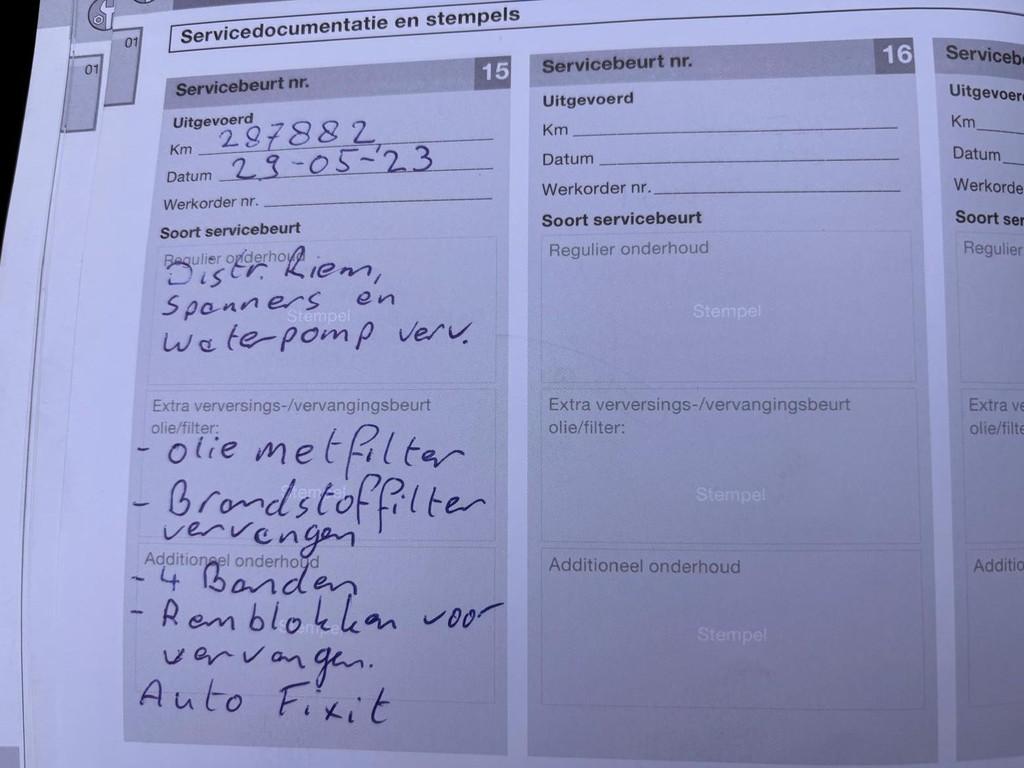 01
01
Servicedocumentatie en stempels
Servicebeurt nr. 15
Uitgevoerd
Km 287882
Datum 29-05-'23
Werkorder nr.
Soort servicebeurt
Regulier onderhoud
Distr. Riem,
Spanners en
Stempel
Waterpomp verv.
Extra verversings-/vervangingsbeurt
olie/filter:
- olie metfilter
- Brandstoffilter
Stempel
vervangen
Additioneel onderhoud
- 4 Banden
- Remblokken voor
Stempel
vervangen.
Auto Fixit
Servicebeurt nr. 16
Uitgevoerd
Km
Datum
Werkorder nr.
Soort servicebeurt
Regulier onderhoud
Stempel
Extra verversings-/vervangingsbeurt
olie/filter:
Stempel
Additioneel onderhoud
Stempel
Serviceb
Uitgevoer
Km
Datum
Werkorde
Soort ser
Regulier
Extra ve
olie/filte
Additio